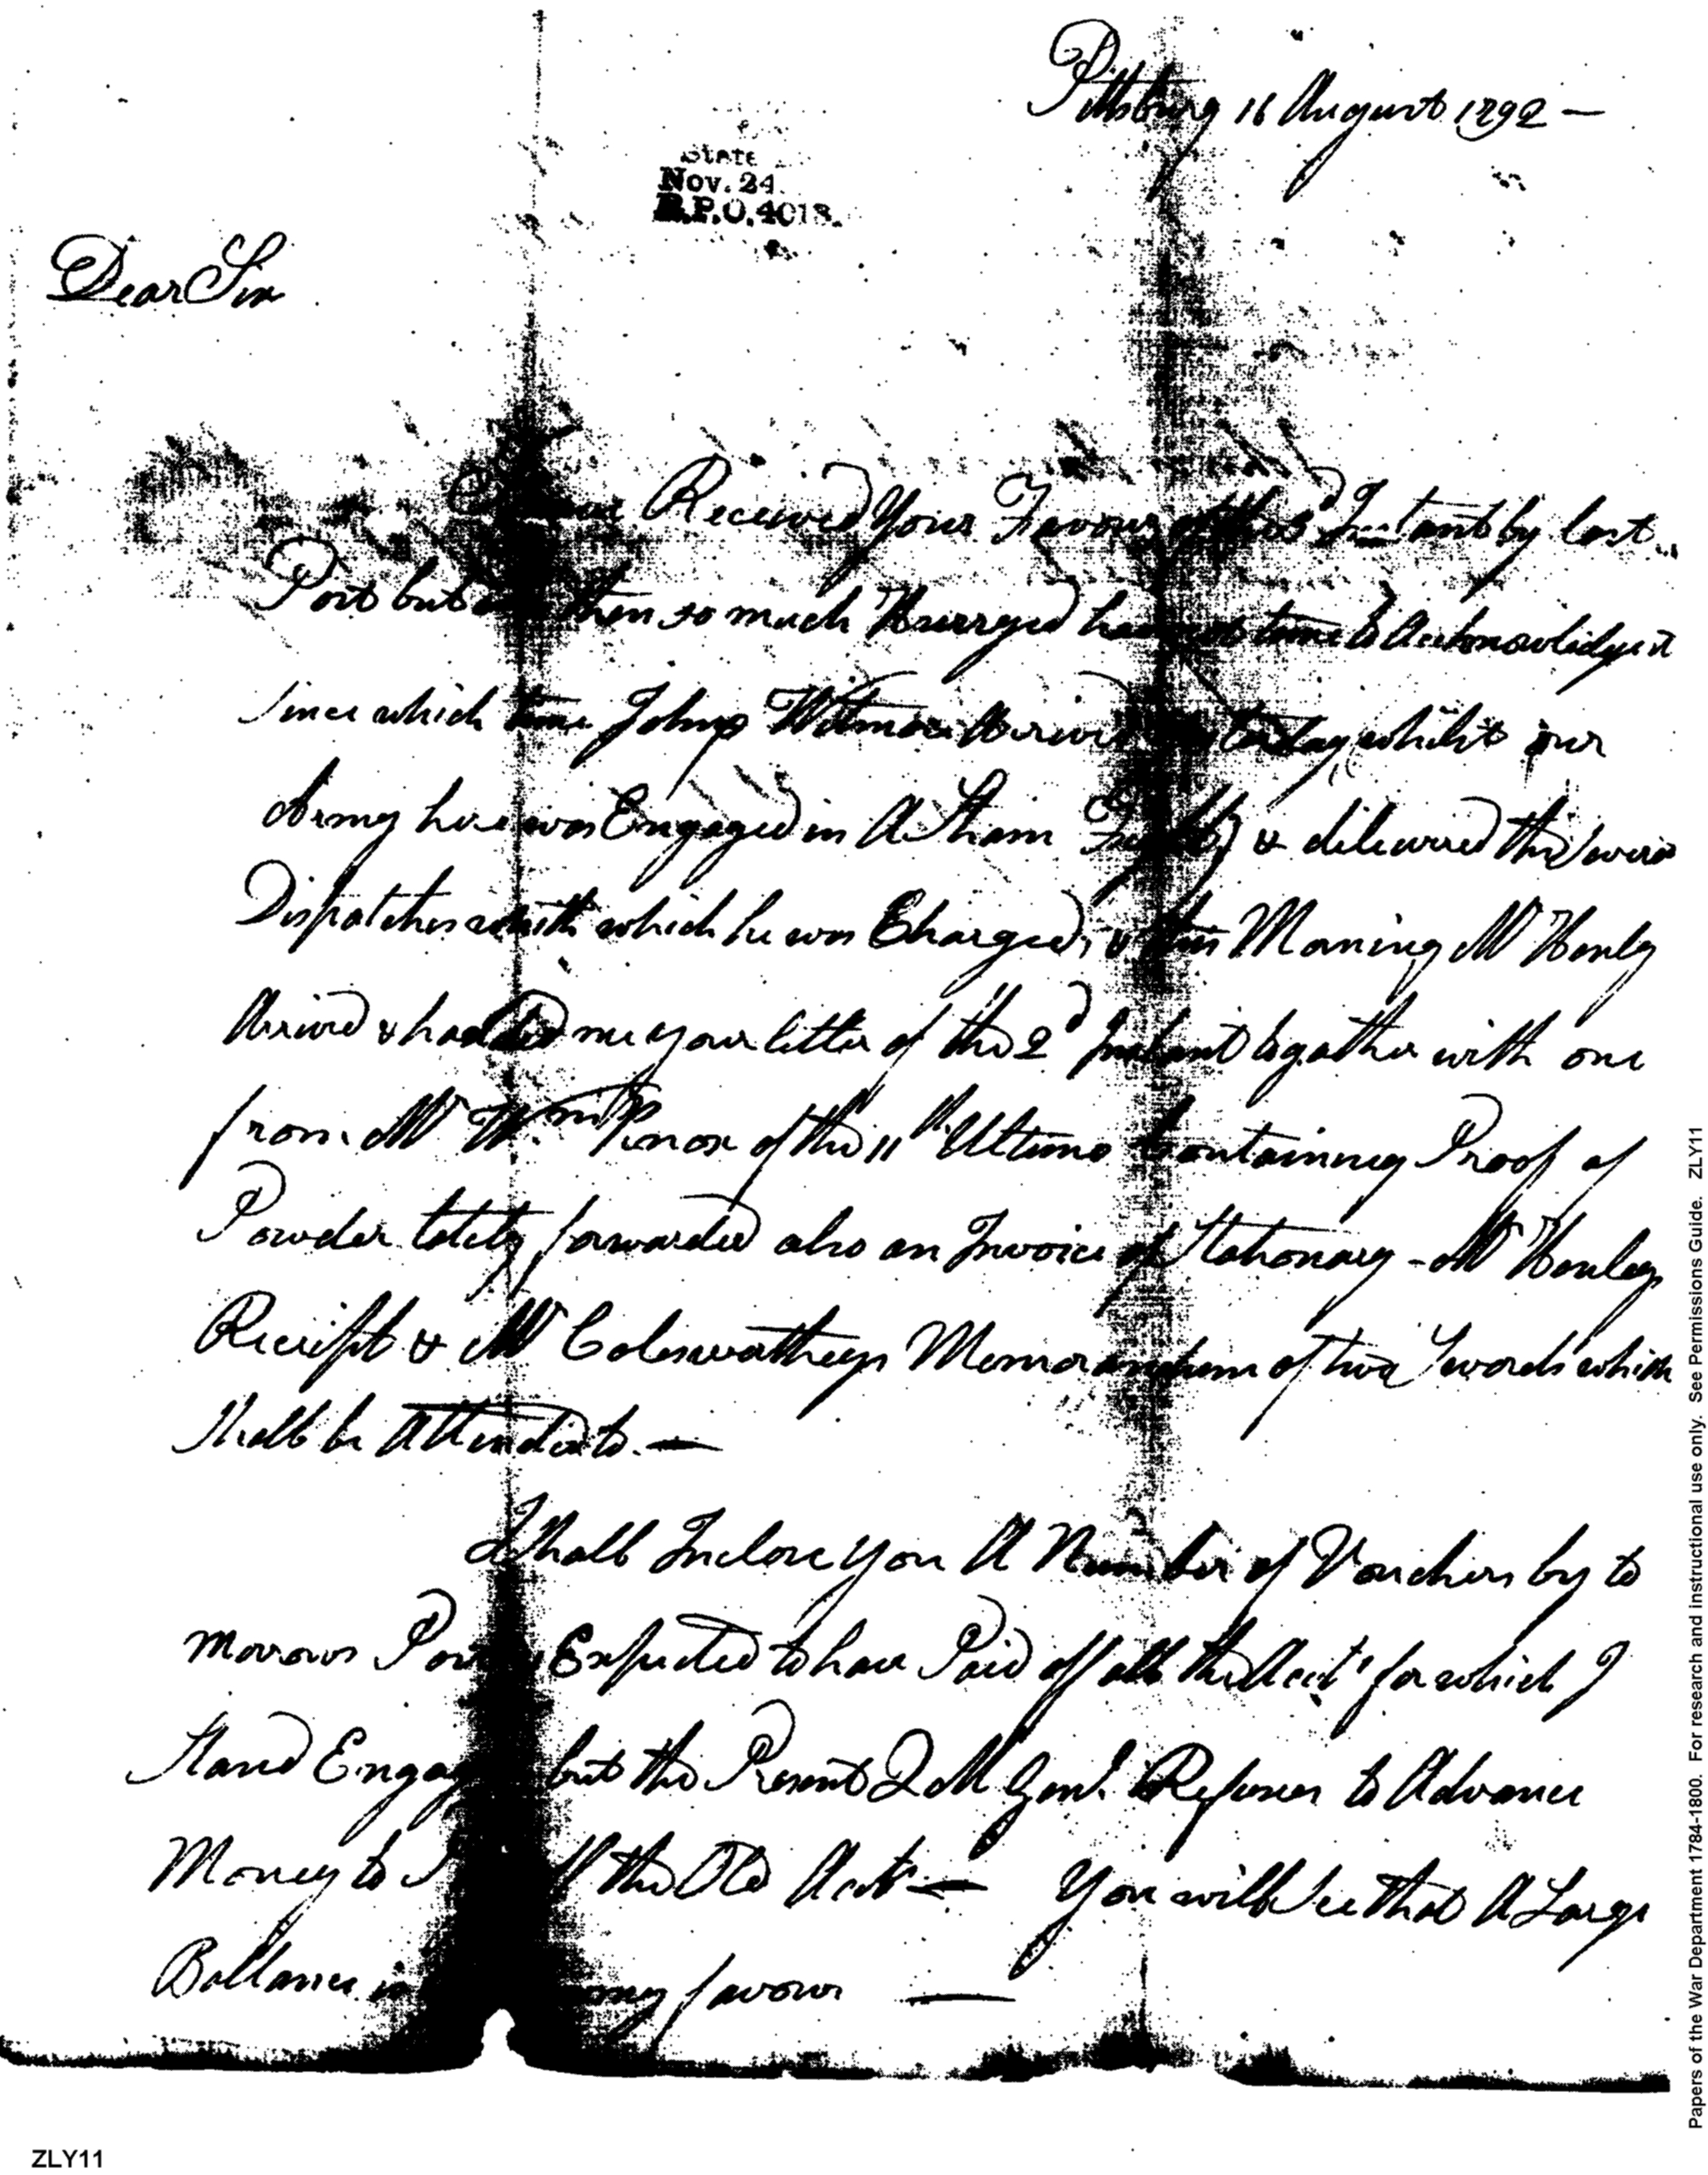 Pittsburg 16 August 1792 —
State
Nov. 24.
R.P.O. 4018.
Dear Sir
Received Your Favour Instant by last
Post but then so much Hurryed time to Acknowlidge it
Since which time John Witmore Arrived whilst our
Army here was Engaged in A Sham & delivered the Several
Dispatches with which he was Charged, & this Morning Mr Henly
Arrived & handed me your letter of the 2d Instant togather with one
from Mr Wm Knox of the 11th Ultimo Containing Proof of
Powder lately forwarded also an Invoice of Stationary - Mr Henleys
Receipt & Mr Coleswortheys Memorandum of two Swords which
Shall be Attended to. —
I Shall Inclose you A Number of Vouchers by to
morrows Post Expected to have Paid off all the Accts for which I
Stand Engaged but the Present Q M Genl. Refuses to Advance
Money to the Old Accts — You will See that A Large
Ballance in my favour —
ZLY11
Papers of the War Department 1784-1800. For research and instructional use only. See Permissions Guide. ZLY11